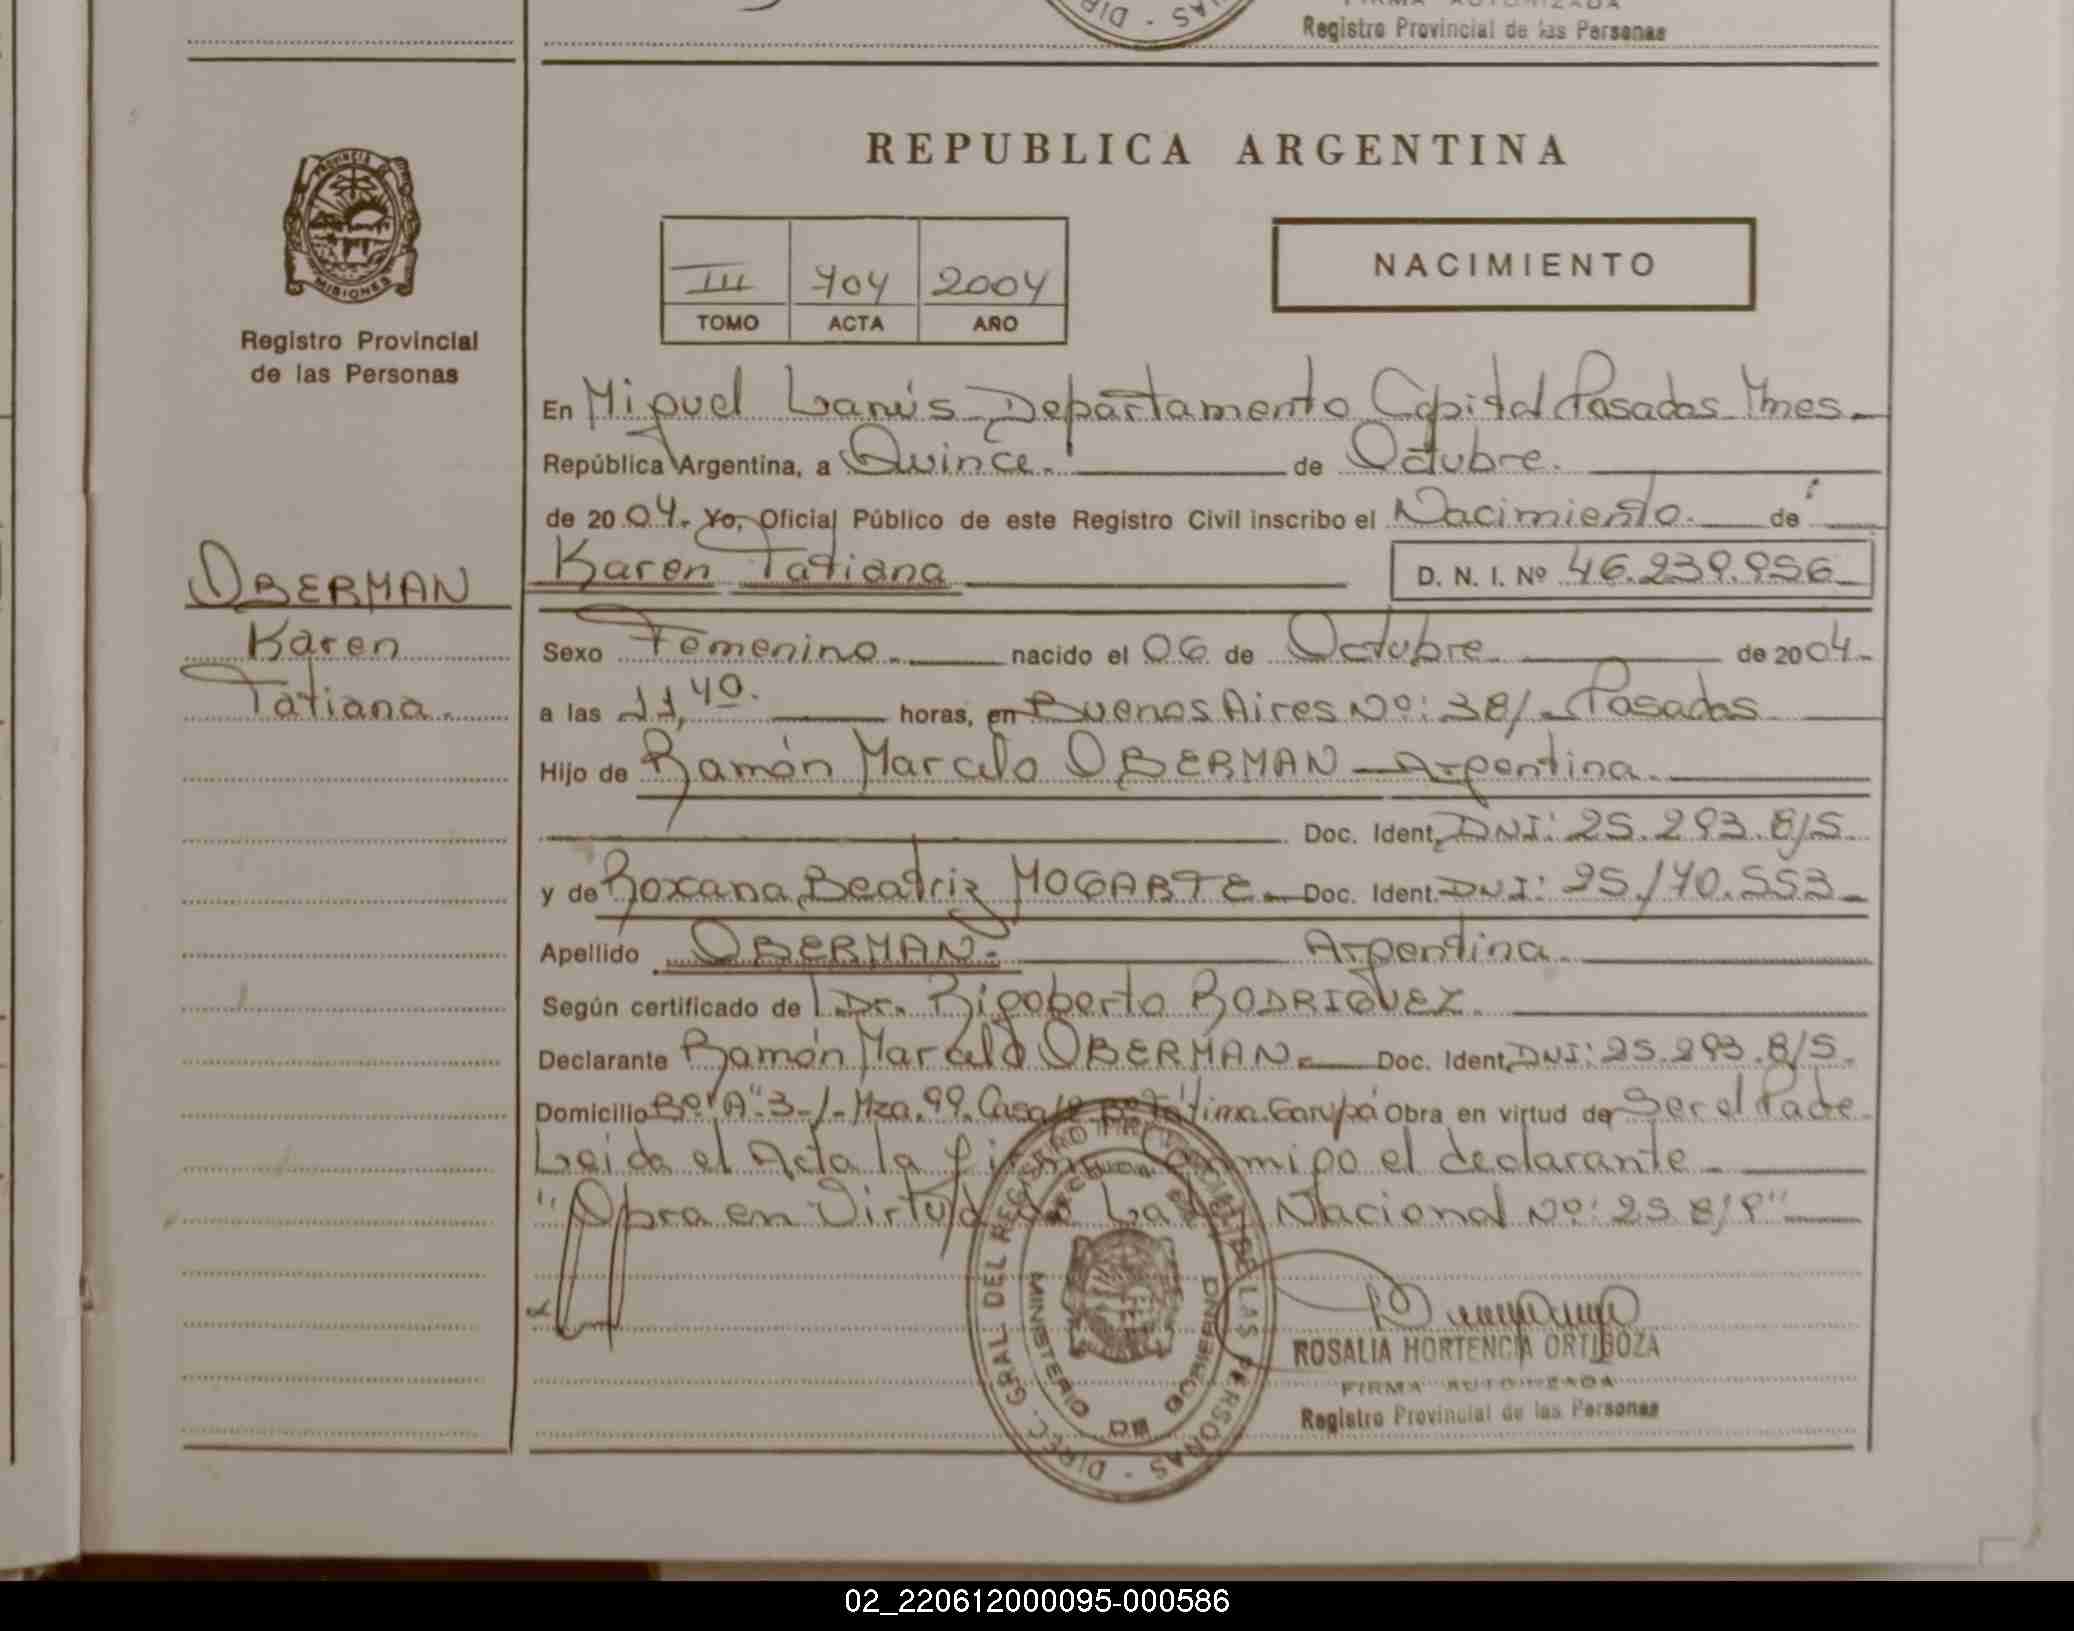 FIRMA AUTORIZADA
Registro Provincial de las Personas
PROVINCIA DE
MISIONES
Registro Provincial
de las Personas
REPUBLICA ARGENTINA
III 704 2004
TOMO ACTA AÑO
NACIMIENTO
En Miguel Lanús Departamento Capital Posadas Mnes.
República Argentina, a Quince. de Octubre.
de 2004. Yo, Oficial Público de este Registro Civil inscribo el Nacimiento. de
Karen Tatiana D. N. I. Nº 46.239.956
OBERMAN
Karen
Tatiana.
Sexo Femenino. nacido el 06 de Octubre de 2004.
a las 11,40. horas, en Buenos Aires Nº: 38/ Posadas
Hijo de Ramón Marcelo OBERMAN - Argentina.
Doc. Ident. DNI: 25.293.815.
y de Roxana Beatriz MOGARTE. Doc. Ident. DNI: 25.170.553
Apellido OBERMAN. Argentina.
Según certificado de Dr. Rigoberto RODRIGUEZ.
Declarante Ramón Marcelo OBERMAN. Doc. Ident. DNI: 25.293.815.
Domicilio Bº "A" 3-1- Mza. 99. Casa Bº Fátima. Garupá Obra en virtud de Ser el Padre.
Leida el Acta la Conmigo el declarante.
"Obra en Virtud de Nacional Nº: 25 819"
DIREC. GRAL. DEL REGISTRO PROVINCIAL DE LAS PERSONAS
MINISTERIO DE GOBIERNO
ROSALIA HORTENCIA ORTIGOZA
FIRMA AUTORIZADA
Registro Provincial de las Personas
02_220612000095-000586